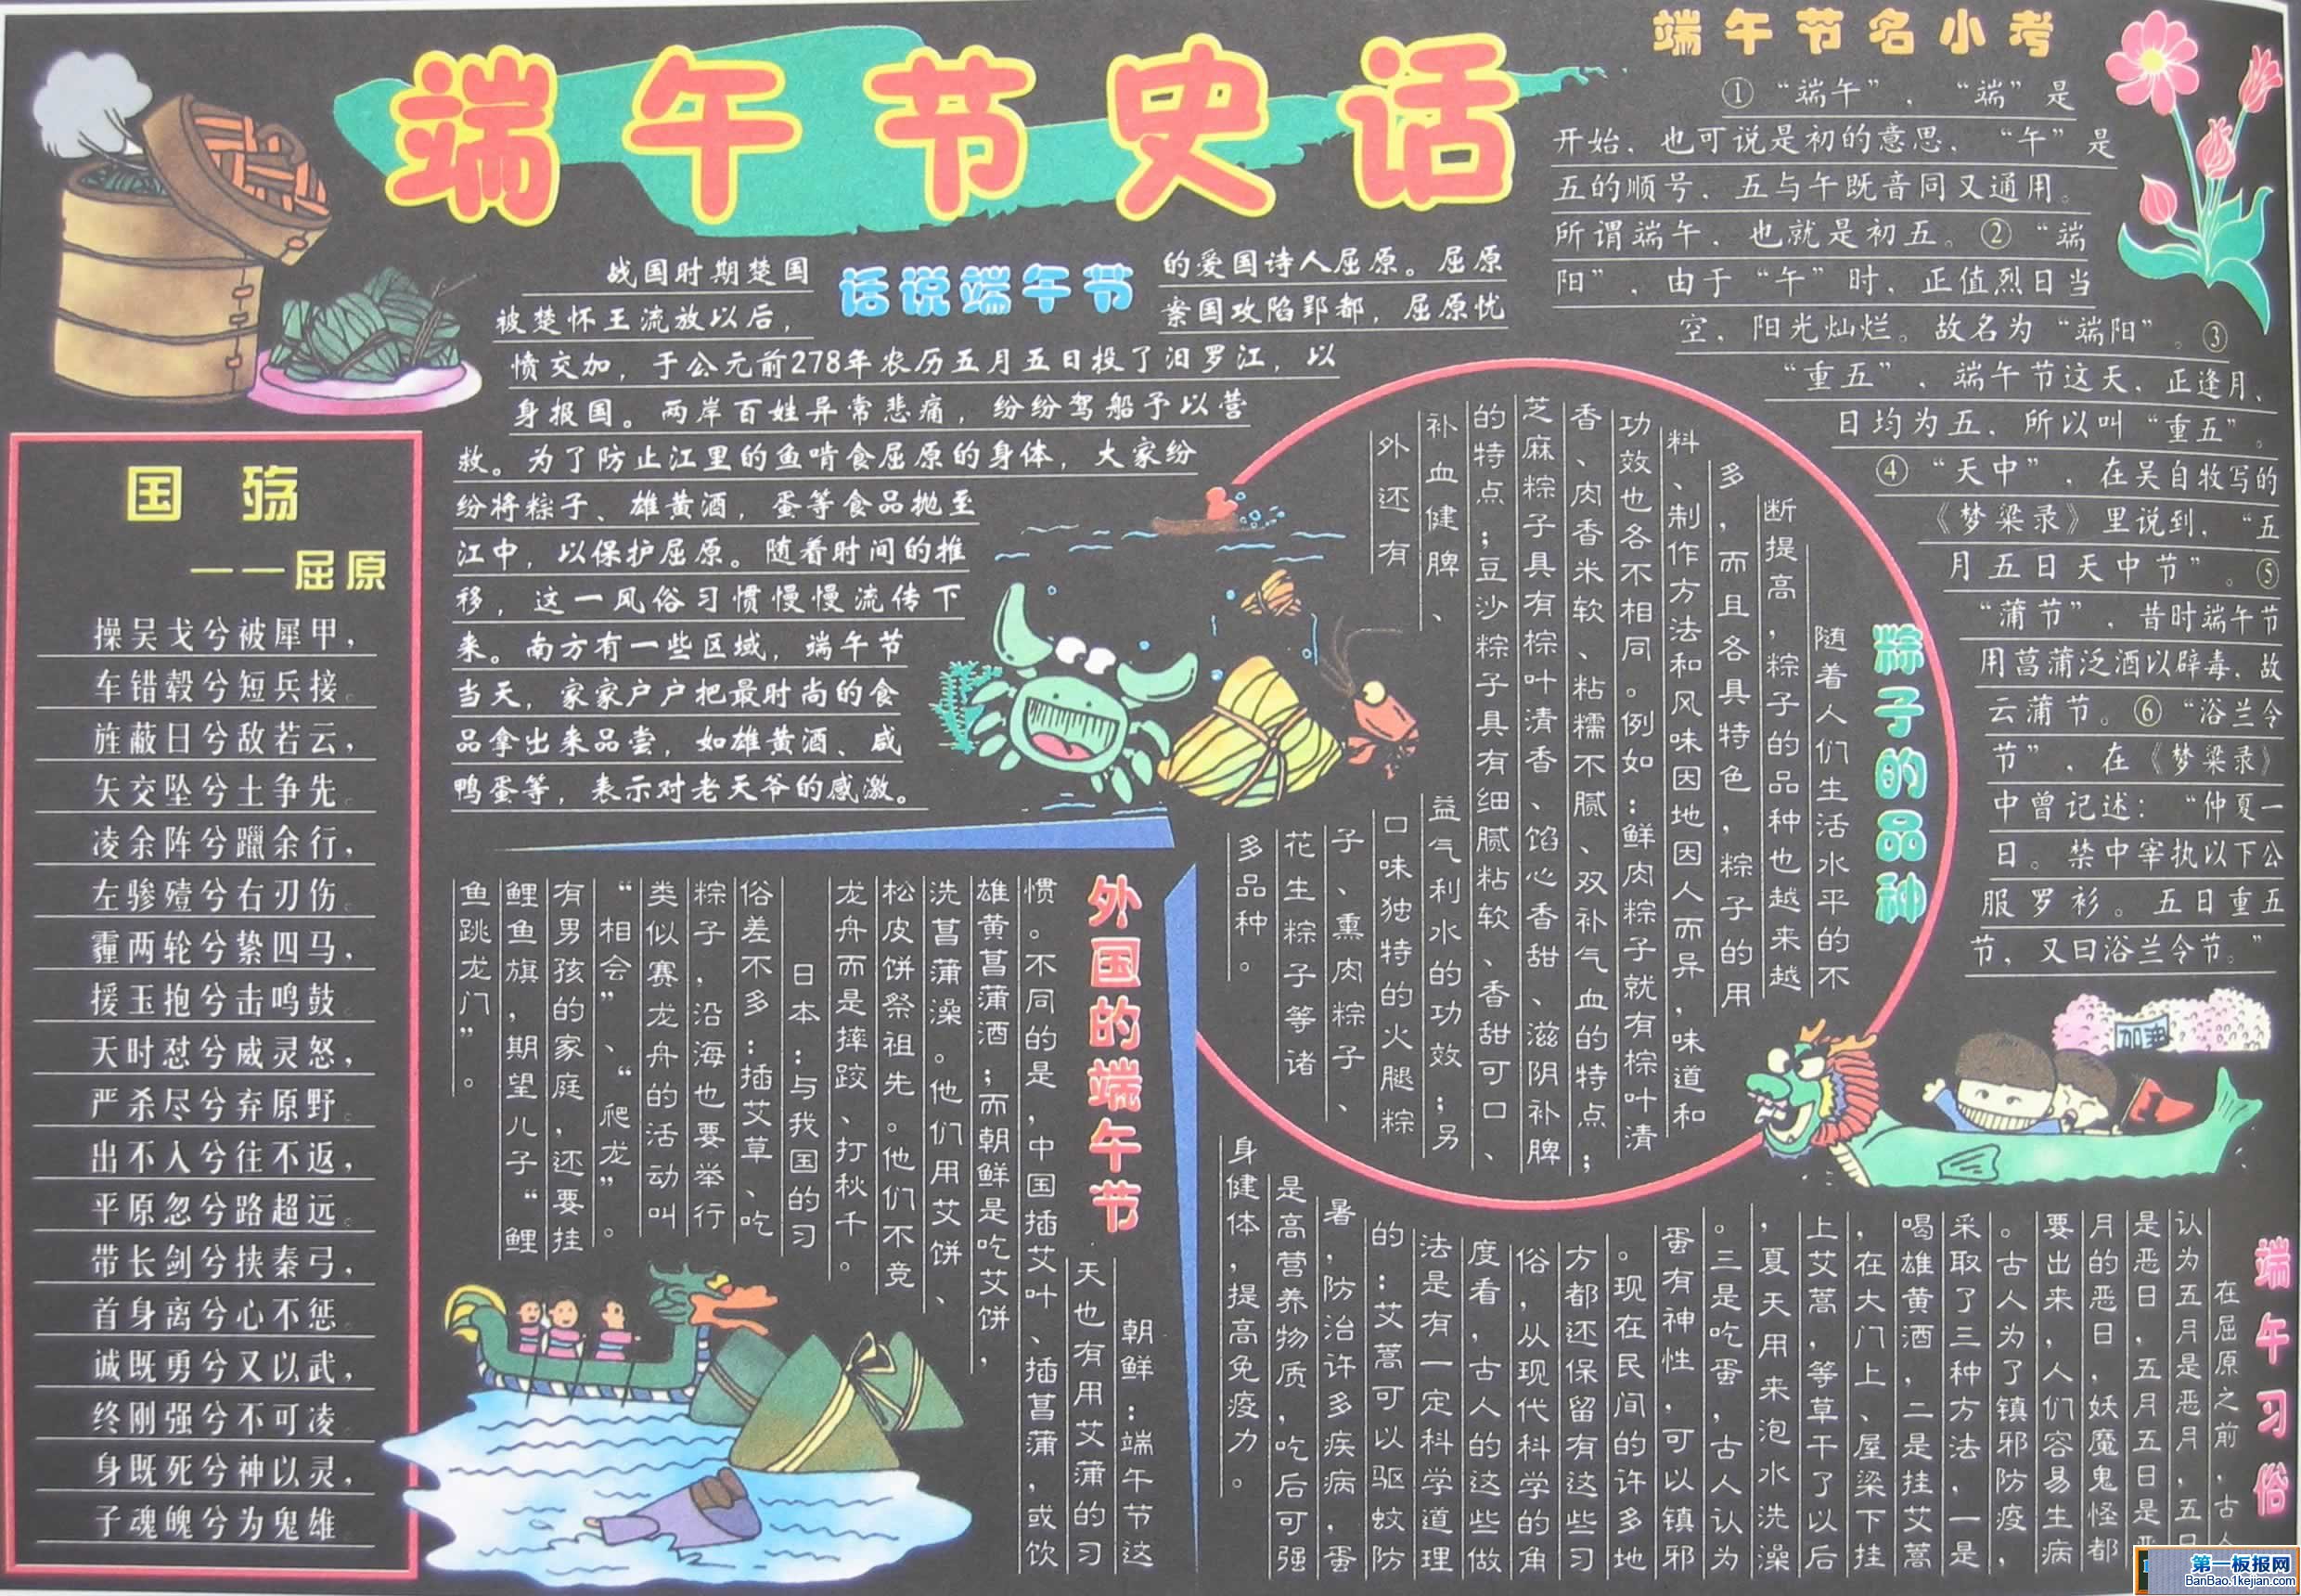 端午节史话
国殇
——屈原
操吴戈兮被犀甲，
车错毂兮短兵接。
旌蔽日兮敌若云，
矢交坠兮士争先。
凌余阵兮躐余行，
左骖殪兮右刃伤。
霾两轮兮絷四马，
援玉抱兮击鸣鼓。
天时怼兮威灵怒，
严杀尽兮弃原野。
出不入兮往不返，
平原忽兮路超远。
带长剑兮挟秦弓，
首身离兮心不惩。
诚既勇兮又以武，
终刚强兮不可凌。
身既死兮神以灵，
子魂魄兮为鬼雄
话说端午节
战国时期楚国的爱国诗人屈原。屈原
被楚怀王流放以后，秦国攻陷郢都，屈原忧
愤交加，于公元前278年农历五月五日投了汨罗江，以
身报国。两岸百姓异常悲痛，纷纷驾船予以营
救。为了防止江里的鱼啃食屈原的身体，大家纷
纷将粽子、雄黄酒，蛋等食品抛至
江中，以保护屈原。随着时间的推
移，这一风俗习惯慢慢流传下
来。南方有一些区域，端午节
当天，家家户户把最时尚的食
品拿出来品尝，如雄黄酒、咸
鸭蛋等，表示对老天爷的感激。
端午节名小考
①“端午”，“端”是
开始，也可说是初的意思，“午”是
五的顺号，五与午既音同又通用。
所谓端午，也就是初五。②“端
阳”，由于“午”时，正值烈日当
空，阳光灿烂。故名为“端阳”。③
“重五”，端午节这天，正逢月、
日均为五，所以叫“重五”。
④“天中”，在吴自牧写的
《梦粱录》里说到，“五
月五日天中节”。⑤
“蒲节”，昔时端午节
用菖蒲泛酒以辟毒，故
云蒲节。⑥“浴兰令
节”，在《梦粱录》
中曾记述：“仲夏一
日。禁中宰执以下公
服罗衫。五日重五
节，又曰浴兰令节。”
粽子的品种
随着人们生活水平的不
断提高，粽子的品种也越来越
多，而且各具特色，粽子的用
料、制作方法和风味因地因人而异，味道和
功效也各不相同。例如：鲜肉粽子就有棕叶清
香、肉香米软、粘糯不腻、双补气血的特点；
芝麻粽子具有棕叶清香、馅心香甜、滋阴补脾
的特点；豆沙粽子具有细腻粘软、香甜可口、
补血健脾、益气利水的功效；另
外还有口味独特的火腿粽
子、熏肉粽子、
花生粽子等诸
多品种。
外国的端午节
朝鲜：端午节这
天也有用艾蒲的习
惯。不同的是，中国插艾叶、插菖蒲，或饮
雄黄菖蒲酒；而朝鲜是吃艾饼，
洗菖蒲澡。他们用艾饼、
松皮饼祭祖先。他们不竞
龙舟而是摔跤、打秋千。
日本：与我国的习
俗差不多：插艾草、吃
粽子，沿海也要举行
类似赛龙舟的活动叫
“相会”、“爬龙”。
有男孩的家庭，还要挂
鲤鱼旗，期望儿子“鲤
鱼跳龙门”。
加油
端午习俗
在屈原之前，古人
认为五月是恶月，五日
是恶日，五月五日是恶
月的恶日，妖魔鬼怪都
要出来，人们容易生病
。古人为了镇邪防疫，
采取了三种方法，一是
喝雄黄酒，二是挂艾蒿
，在大门上、屋梁下挂
上艾蒿，等草干了以后
，夏天用来泡水洗澡
。三是吃蛋，古人认为
蛋有神性，可以镇邪
。现在民间的许多地
方都还保留有这些习
俗，从现代科学的角
度看，古人的这些做
法是有一定科学道理
的：艾蒿可以驱蚊防
暑，防治许多疾病，蛋
是高营养物质，吃后可强
身健体，提高免疫力。
第一板报网
BanBao.1kejian.com